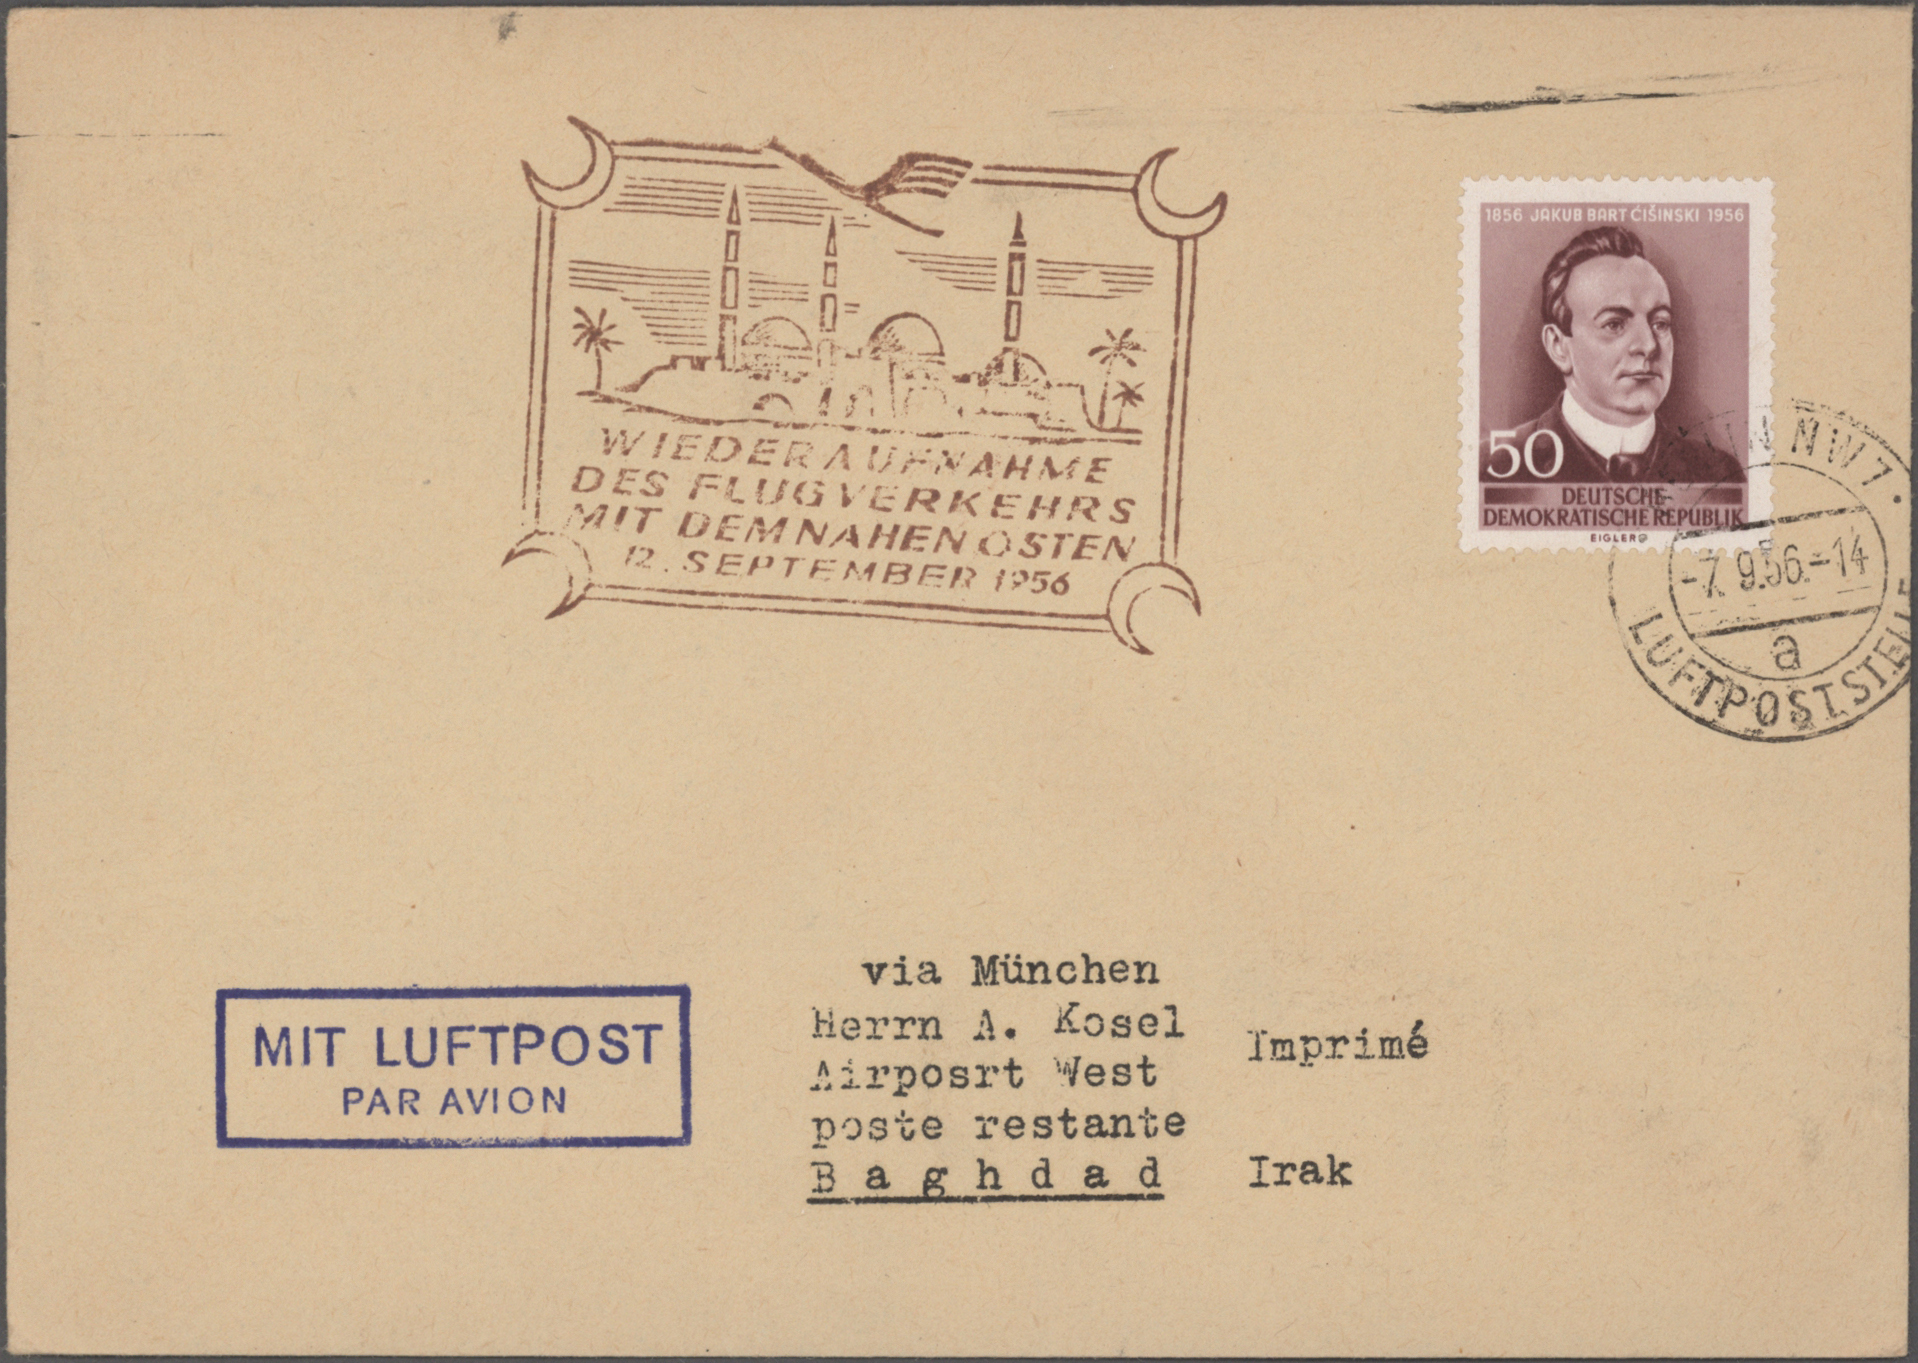 WIEDERAUFNAHME
DES FLUGVERKEHRS
MIT DEM NAHEN OSTEN
12. SEPTEMBER 1956
1856 JAKUB BART ĆIŠINSKI 1956
50
DEUTSCHE
DEMOKRATISCHE REPUBLIK
EIGLER
NW 7
-7.9.56.-14
a
LUFTPOSTSTELLE
MIT LUFTPOST
PAR AVION
via München
Herrn A. Kosel
Imprimé
Airposrt West
poste restante
Baghdad Irak